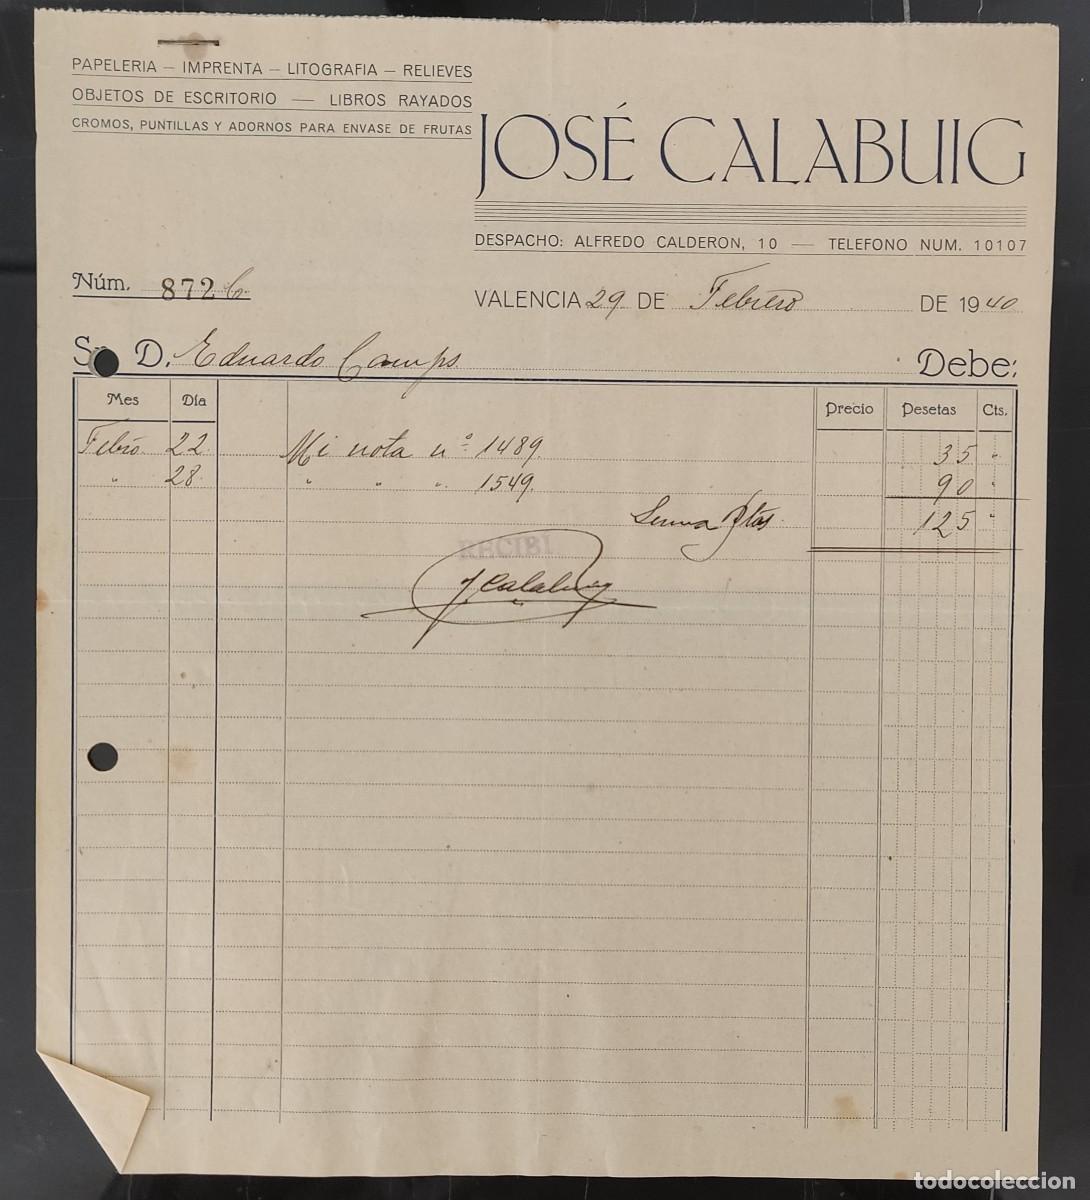 PAPELERIA — IMPRENTA — LITOGRAFIA — RELIEVES
OBJETOS DE ESCRITORIO — LIBROS RAYADOS
CROMOS, PUNTILLAS Y ADORNOS PARA ENVASE DE FRUTAS
JOSÉ CALABUIG
DESPACHO: ALFREDO CALDERON, 10 — TELEFONO NUM. 10107
Núm. 872
VALENCIA 29 DE Febrero DE 1940
D. Eduardo Camps Debe:
Mes Día Precio Pesetas Cts.
Febro. 22 Mi nota nº 1489 35 "
" 28 " " " 1549. 90 "
Suma Ptas. 125 "
RECIBI
J Calabuig
todocoleccion